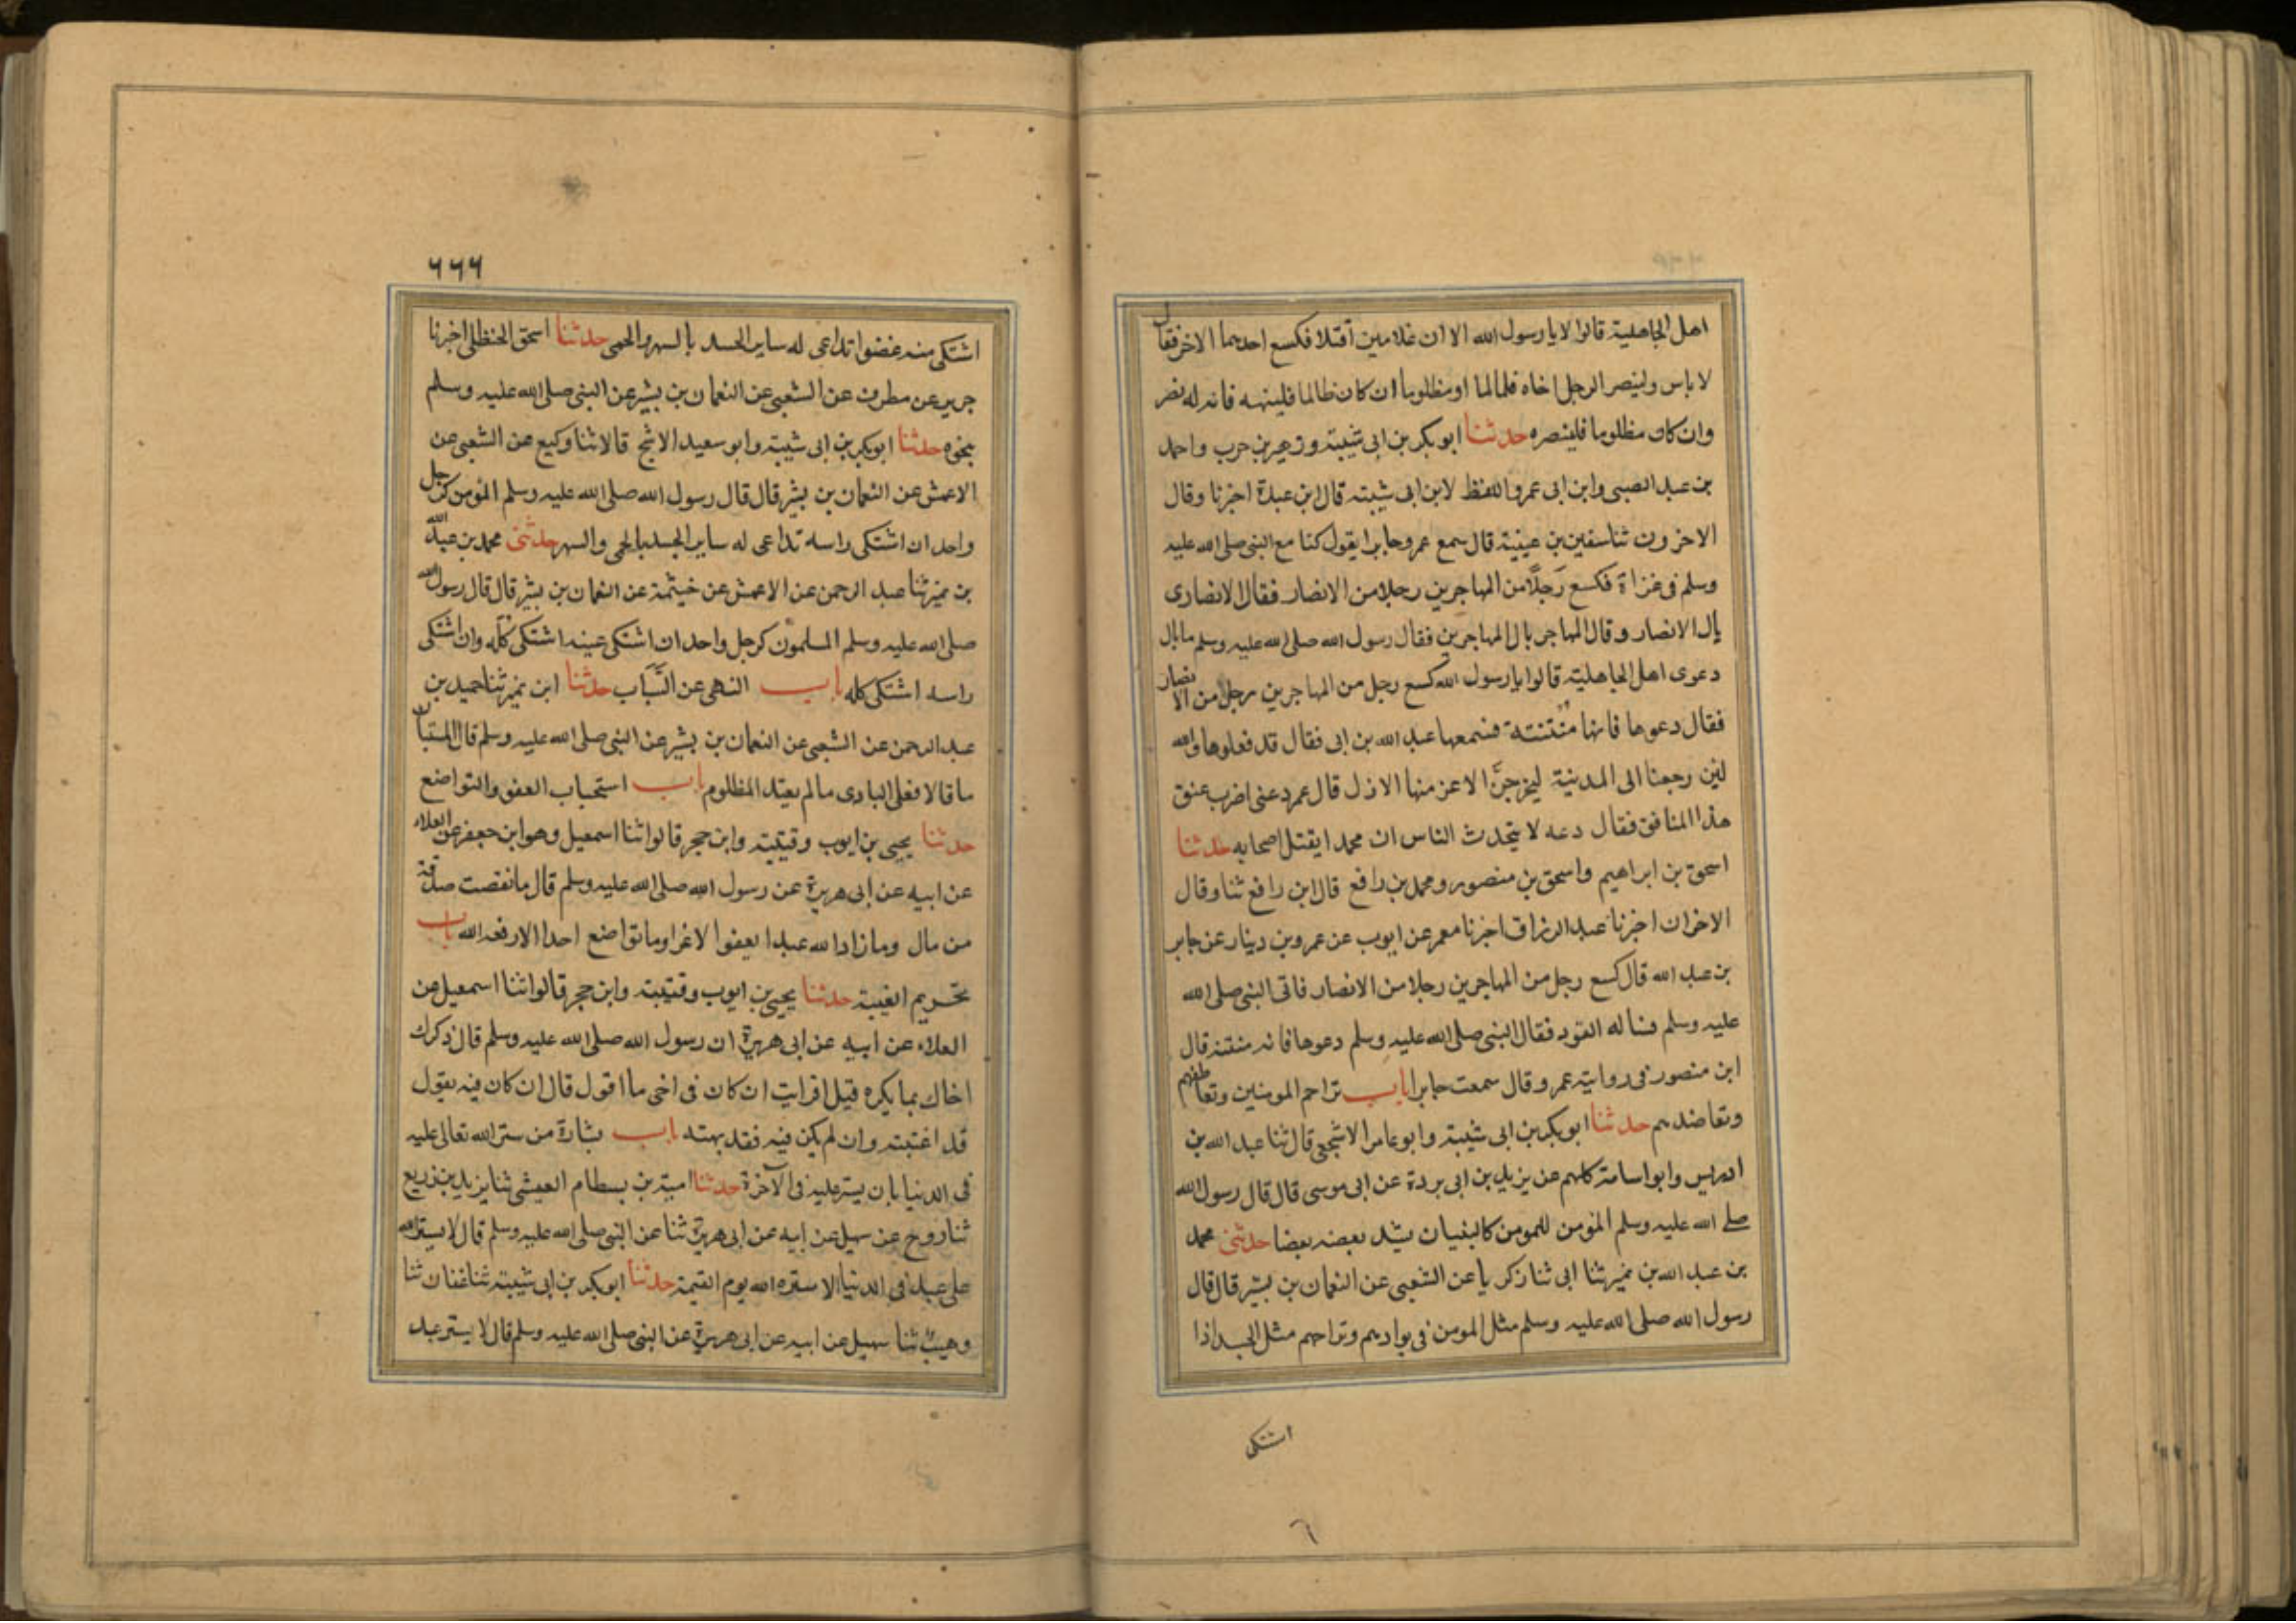 اهل الجاهلية قالوا لا يا رسول الله الا ان غلامين اقتتلا فكسع احدهما الاخر فقال
لا باس ولينصر الرجل اخاه ظالما او مظلوما ان كان ظالما فلينهه فانه له نصر
وان كان مظلوما فلينصره حدثنا ابو بكر بن ابى شيبة وزهير بن حرب واحمد
بن عبد الضبى وابن ابى عمر واللفظ لابن ابى شيبة قال ابن عبدة اخبرنا وقال
الاخرون ثنا سفين بن عيينة قال سمع عمرو جابرا يقول كنا مع النبى صلى الله عليه
وسلم فى غزاة فكسع رجلا من المهاجرين رجلا من الانصار فقال الانصارى
يال الانصار وقال المهاجر يال المهاجرين فقال رسول الله صلى الله عليه وسلم ما بال
دعوى اهل الجاهلية قالوا يا رسول الله كسع رجل من المهاجرين رجلا من الانصار
فقال دعوها فانها منتنة فسمعها عبد الله بن ابى فقال قد فعلوها والله
لئن رجعنا الى المدينة ليخرجن الاعز منها الاذل قال عمر دعنى اضرب عنق
هذا المنافق فقال دعه لا يتحدث الناس ان محمدا يقتل اصحابه حدثنا
اسحق بن ابراهيم واسحق بن منصور ومحمد بن رافع قال ابن رافع ثنا وقال
الاخران اخبرنا عبد الرزاق اخبرنا معمر عن ايوب عن عمرو بن دينار عن جابر
بن عبد الله قال كسع رجل من المهاجرين رجلا من الانصار فاتى النبى صلى الله
عليه وسلم فساله القود فقال النبى صلى الله عليه وسلم دعوها فانه منتنة قال
ابن منصور فى روايته عمرو قال سمعت جابرا باب تراحم المومنين وتعاطفهم
وتعاضدهم حدثنا ابو بكر بن ابى شيبة وابو عامر الاشجعى قال ثنا عبد الله بن
ادريس وابو اسامة كلهم عن يزيد بن ابى بردة عن ابى موسى قال قال رسول الله
صلى الله عليه وسلم المؤمن للمومن كالبنيان يشد بعضه بعضا حدثنى محمد
بن عبد الله بن نمير ثنا ابى ثنا زكريا عن الشعبى عن النعمان بن بشير قال قال
رسول الله صلى الله عليه وسلم مثل المومن فى توادهم وتراحم مثل الجسد اذا
اشتكى
٦
٦٦٦
اشتكى منه عضوا تداعى له ساير الجسد بالسهر والحمى حدثنا اسحق الحنظلى اخبرنا
جرير عن مطرف عن الشعبى عن النعمان بن بشير عن النبى صلى الله عليه وسلم
بنحوه حدثنا ابو بكر بن ابى شيبة وابو سعيد الاشج قالا ثنا وكيع عن الشعبى عن
الاعمش عن النعمان بن بشير قال قال رسول الله صلى الله عليه وسلم المؤمن كرجل
واحد ان اشتكى راسه تداعى له ساير الجسد بالحمى والسهر حدثنى محمد بن عبد الله
بن نمير ثنا عبد الرحمن عن الاعمش عن خيثمة عن النعمان بن بشير قال قال رسول الله
صلى الله عليه وسلم المسلمون كرجل واحد ان اشتكى عينه اشتكى كله وان اشتكى
راسه اشتكى كله باب النهى عن السباب حدثنا ابن نمير ثنا حميد بن
عبد الرحمن عن الشعبى عن النعمان بن بشير عن النبى صلى الله عليه وسلم قال المستبان
ما قالا فعلى البادى ما لم يعتد المظلوم باب استحباب العفو والتواضع
حدثنا يحيى بن ايوب وقتيبة وابن حجر قالوا ثنا اسمعيل وهو ابن جعفر عن العلاء
عن ابيه عن ابى هريرة عن رسول الله صلى الله عليه وسلم قال ما نقصت صدقة
من مال وما زاد الله عبدا يعفوا لا غرا وما تواضع احدا الا رفعه الله باب
تحريم الغيبة حدثنا يحيى بن ايوب وقتيبة وابن حجر قالوا ثنا اسمعيل عن
العلاء عن ابيه عن ابى هريرة ان رسول الله صلى الله عليه وسلم قال ذكرك
اخاك بما يكره قيل افرايت ان كان فى اخى ما اقول قال ان كان فيه يقول
قد اغتبته وان لم يكن فيه فقد بهته باب بشارة من ستر الله تعالى عليه
فى الدنيا بان يستر عليه فى الآخرة حدثنا امية بن بسطام العيشى ثنا يزيد بن زريع
ثنا روح عن سهيل عن ابيه عن ابى هريرة ثنا عن النبى صلى الله عليه وسلم قال لا يستر الله
على عبد فى الدنيا الا ستره الله يوم القيمة حدثنا ابو بكر بن ابى شيبة ثنا عفان ثنا
وهيب ثنا سهيل عن ابيه عن ابى هريرة عن النبى صلى الله عليه وسلم قال لا يستر عبد